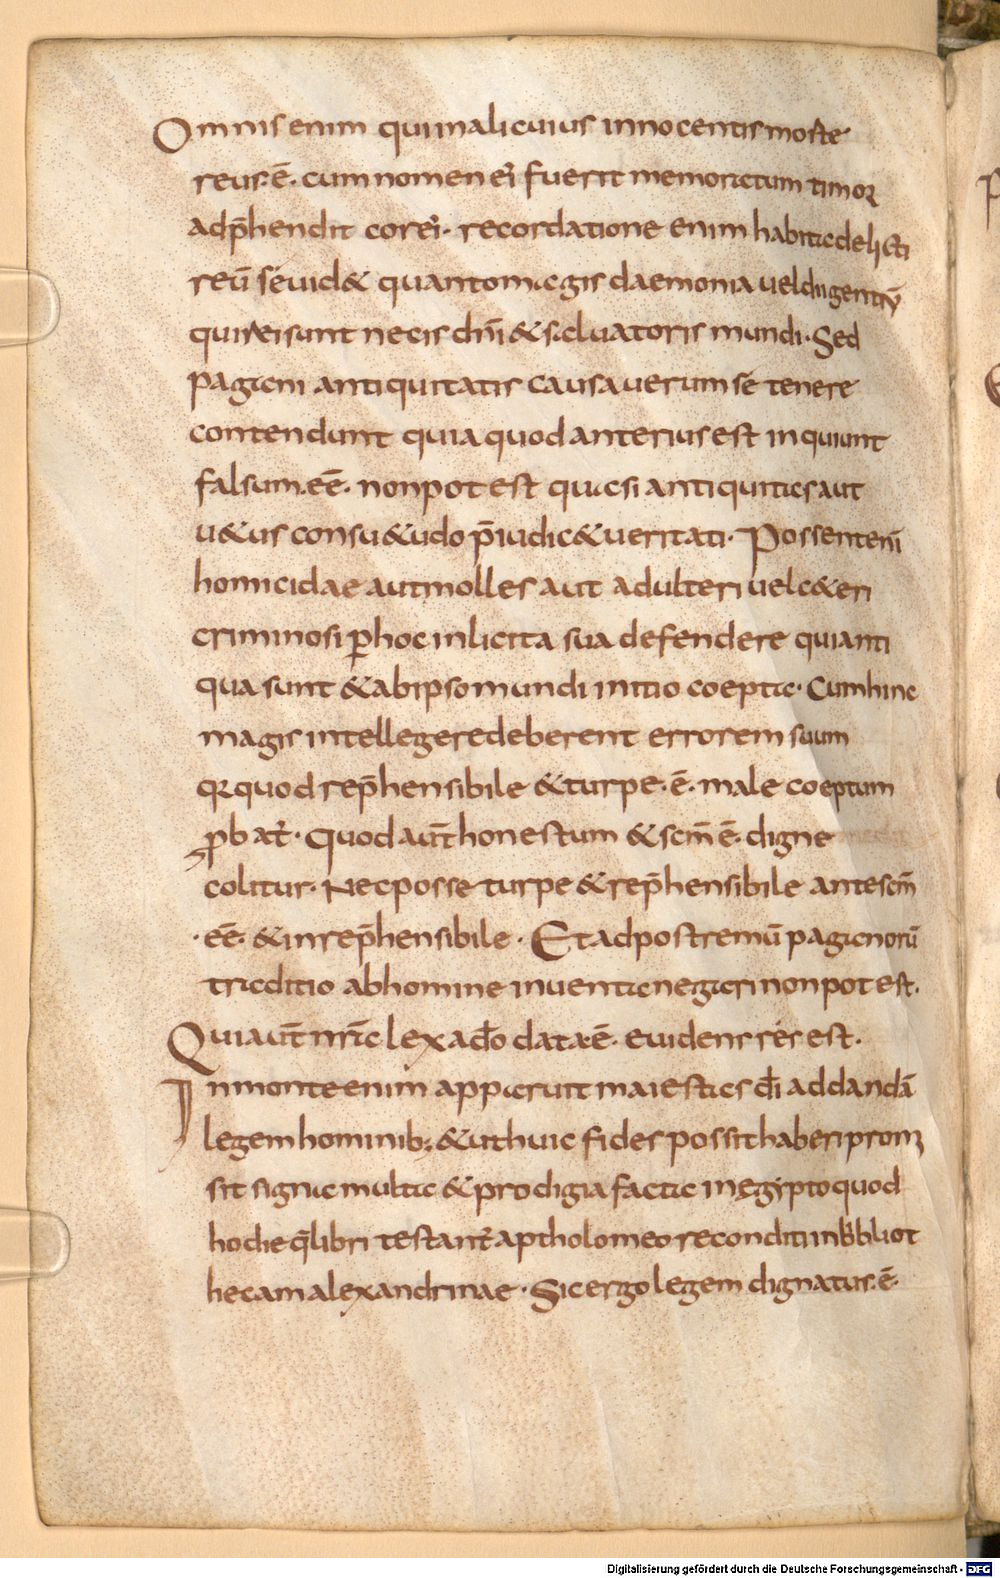 Omnis enim qui inalicuius innocentis morte
reus·ē· cum nomen eī fuerit memoratum timor
adp̄hendit cor eī· recordatione enim habita delicti
reū sé uidet quanto magis daemonia uel dii gentiū
qui rei sunt necis dn̄i & saluatoris mundi· Sed
pagani antiquitatis causa uerum sé tenere
contendunt quia quod anterius est inquiunt
falsum·eē· non potest quasi antiquitas aut
u&us consu&udo p̄iudic& ueritati· Possent enī
homicidae aut molles aut adulteri uel c&eri
criminosi ꝑ hoc inlicita sua defendere quia anti
qua sunt & ab ipso mundi initio coepta· Cum hinc
magis intellegere deberent errorem suum
qꝛ quod rep̄hensibile & turpe·ē· male coeptum
ꝓbat᷑· Quod aut̄ honestum & scm̄ ē· digne
colitur· Nec posse turpe & rep̄hensibile ante scm̄
·eē· & inrep̄hensibile· Et ad postremū paganorū
traditio ab homine inuenta negari non potest·
Quia aut̄ nr̄a lex a do̅ data·ē· euidens rés est·
In monte enim apparuit maiestas dī ad dandā
legem hominib; & ut huic fides possit haberi prom
sit signa multa & prodigia facta in egypto quod
hodieq; libri testant᷑ a ptholomeo reconditi in bibliot
hecam alexandrinae· Sic ergo legem dignatus·ē·
Digitalisierung gefördert durch die Deutsche Forschungsgemeinschaft - DFG